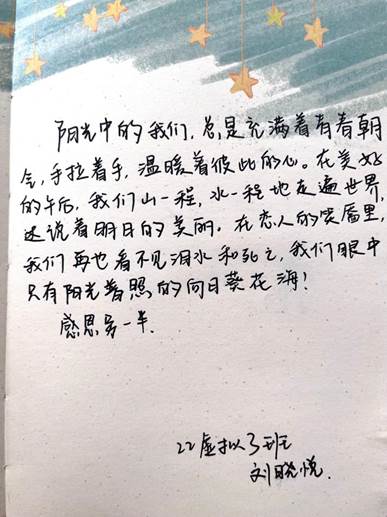 阳光中的我们，总是充满着有着朝
气，手拉着手，温暖着彼此的心。在美好
的午后，我们山一程，水一程地走遍世界，
述说着明日的美丽。在恋人的笑靥里，
我们再也看不见泪水和死亡，我们眼中
只有阳光普照的向日葵花海！
感恩另一半.
22虚拟3班
刘晓悦.